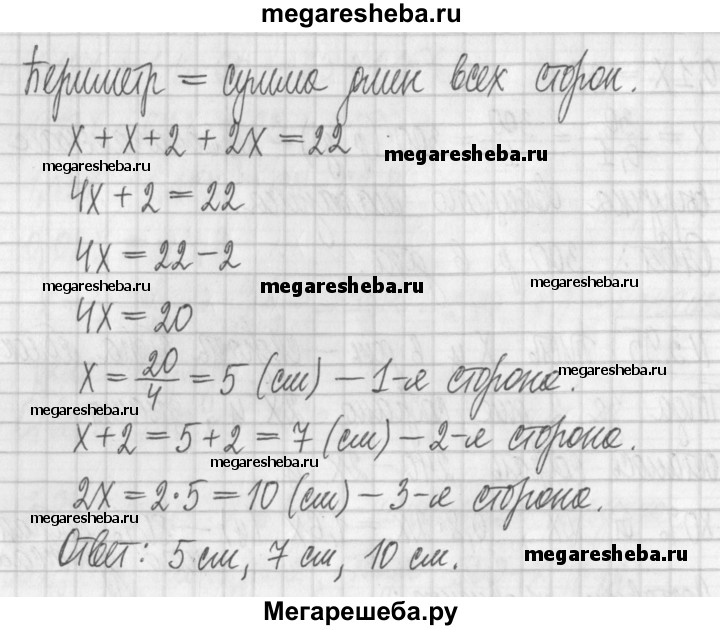 megaresheba.ru
Периметр = сумма длин всех сторон.
x + x + 2 + 2x = 22
megaresheba.ru
megaresheba.ru
4x + 2 = 22
4x = 22 - 2
megaresheba.ru
megaresheba.ru
megaresheba.ru
4x = 20
x = 20/4 = 5 (см) - 1-я сторона.
megaresheba.ru
megaresheba.ru
x + 2 = 5 + 2 = 7 (см) - 2-я сторона.
megaresheba.ru
2x = 2·5 = 10 (см) - 3-я сторона.
megaresheba.ru
Ответ: 5 см, 7 см, 10 см.
megaresheba.ru
Мегарешеба.ру